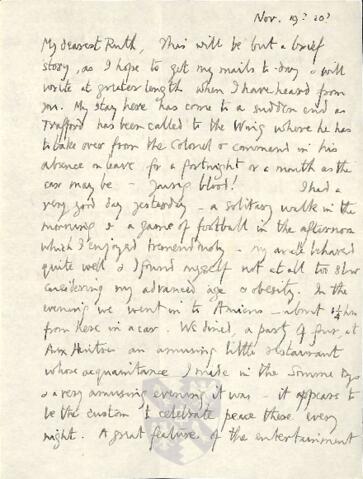 Nov. 19? 20?
My dearest Ruth, This will be but a brief
story, as I hope to get my mails to-day & will
write at greater length when I have heard from
you. My stay here has come to a sudden end as
Trafford has been called to the Wing where he has
to take over from the Colonel & command in his
absence on leave for a fortnight or a month as the
case may be – young blood! I had a
very good day yesterday – a solitary walk in the
morning & a game of football in the afternoon
which I enjoyed tremendously – my ankle behaved
quite well & I found myself not at all too slow
considering my advanced age & obesity. In the
evening we went in to Amiens – about
from here in a car. We dined, a party of four, at
an amusing little restaurant
whose acquaintance I made in the Somme Days
& a very amusing evening it was – it appears to
be the custom to celebrate peace there every
night. A great feature of the entertainment